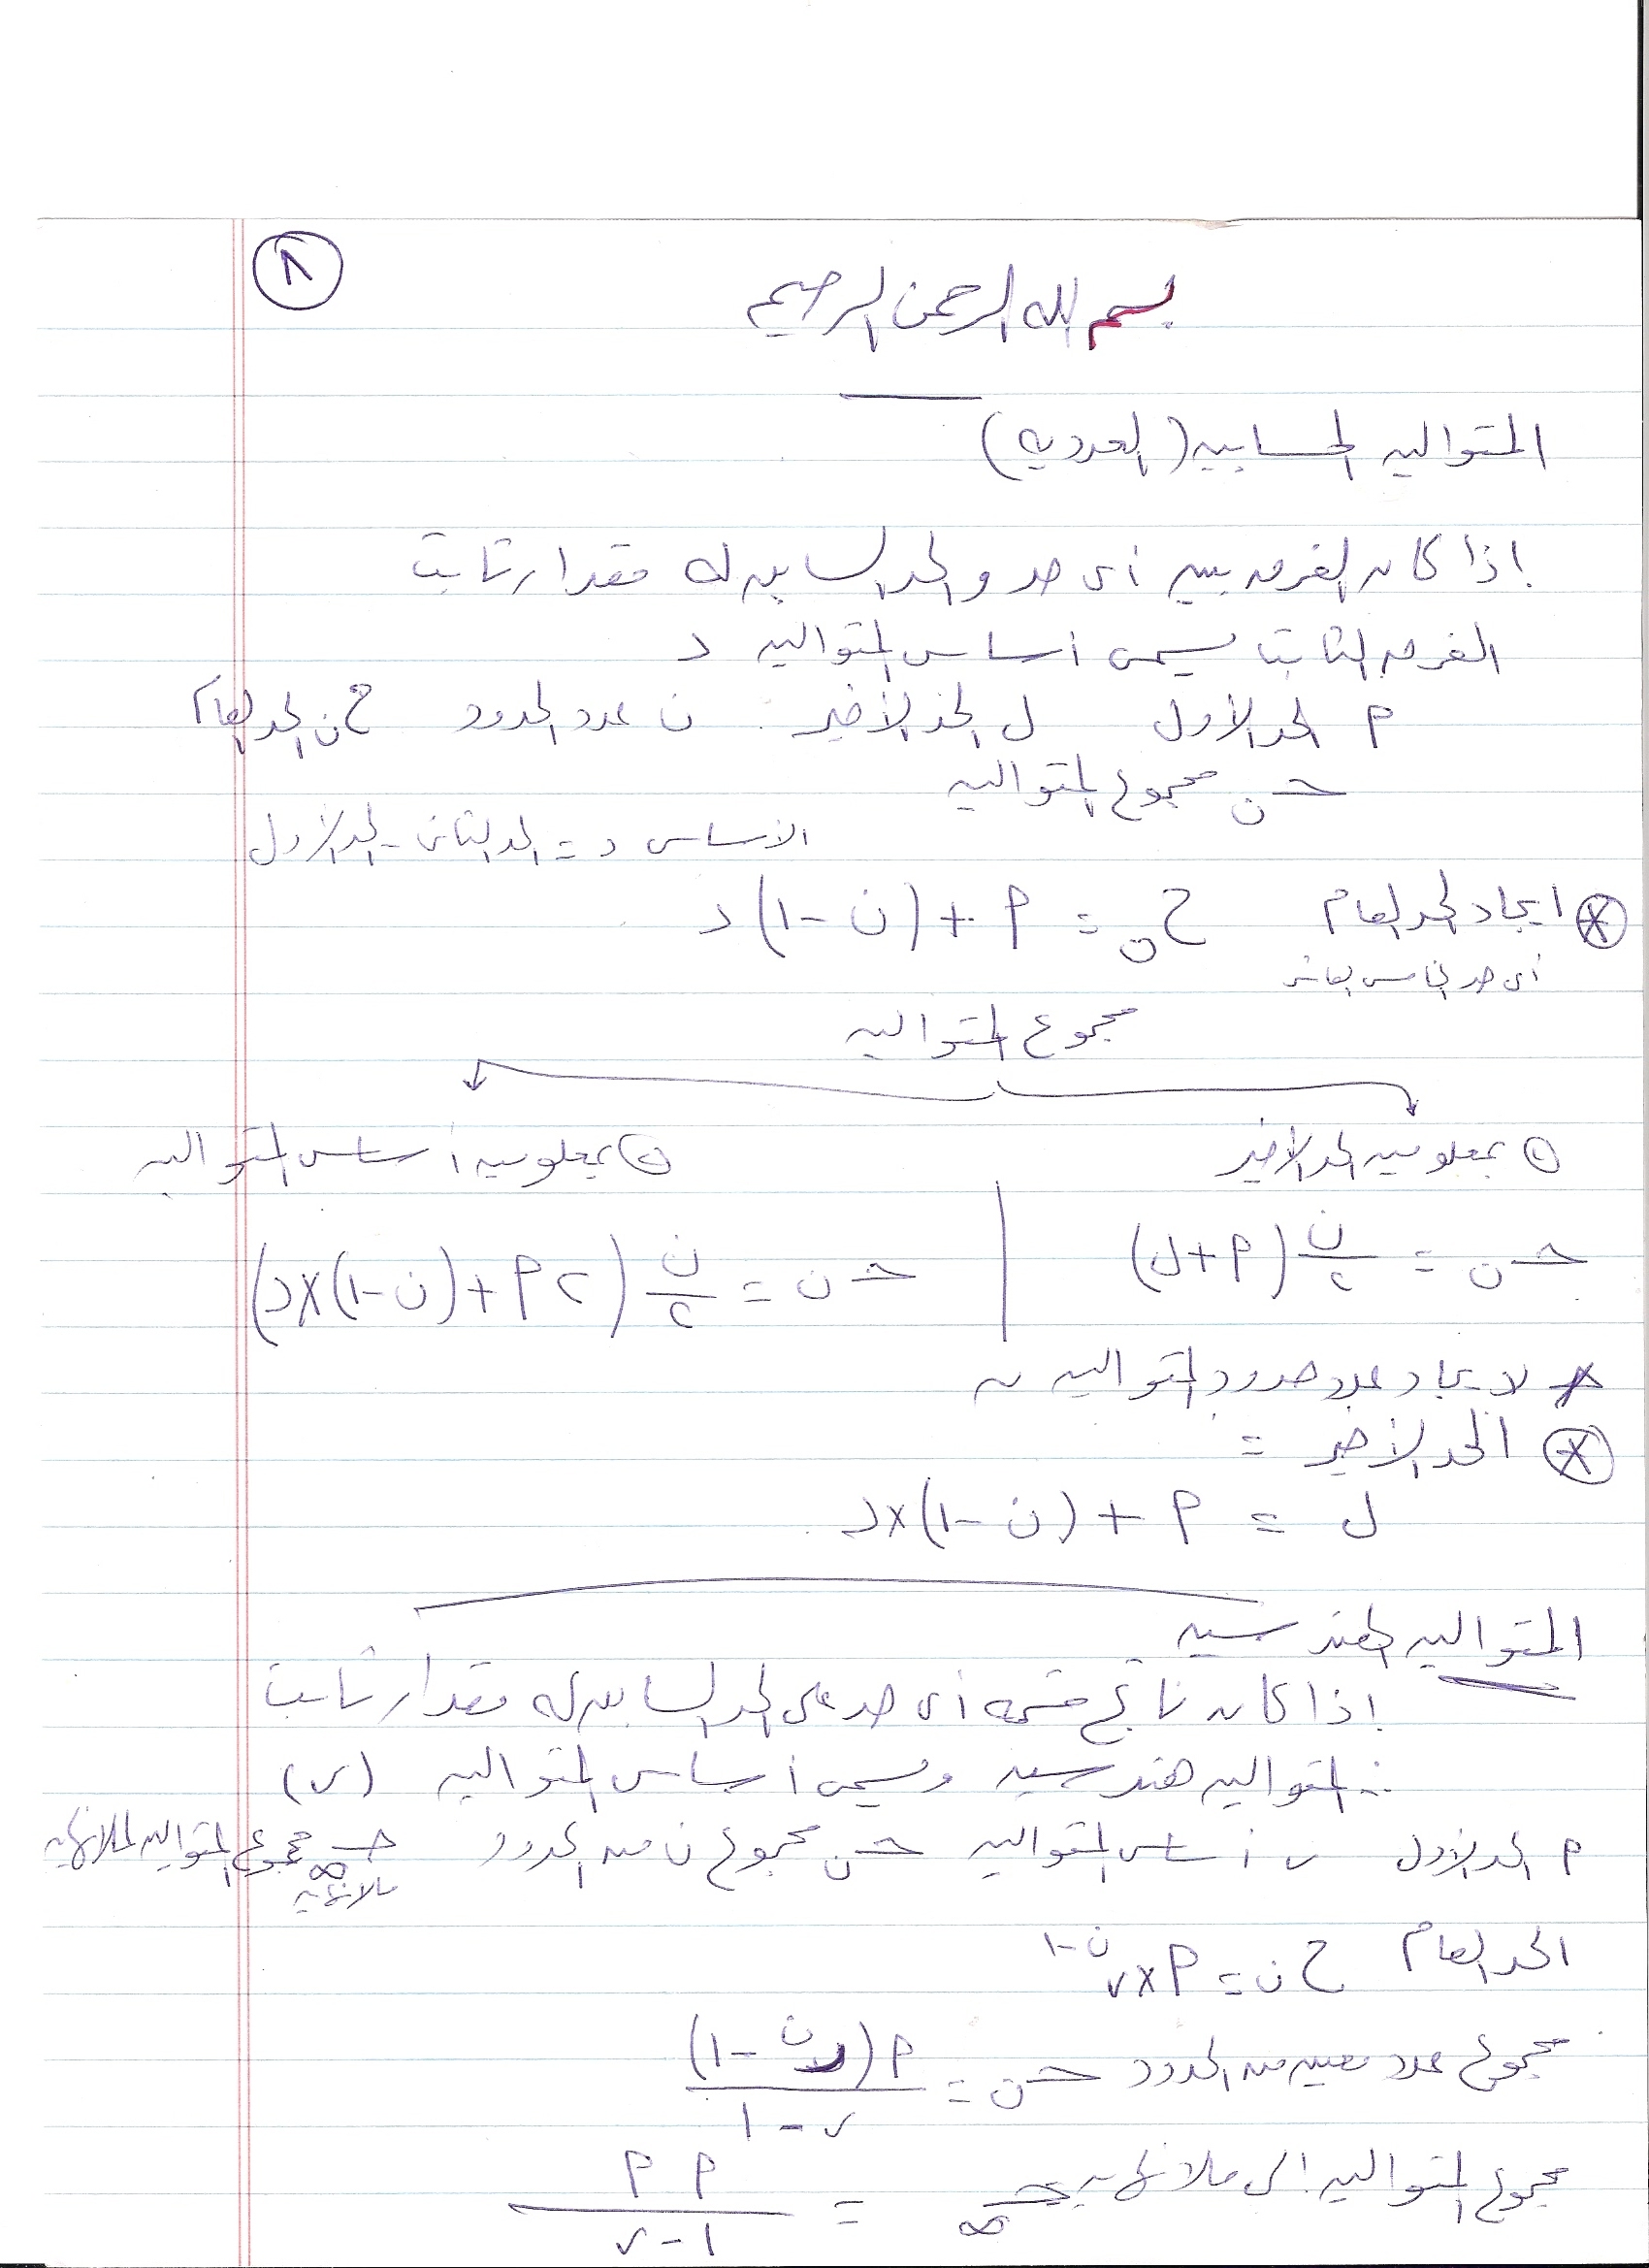 ٨
بسم الله الرحمن الرحيم
المتواليه الحسابيه (العدديه)
إذا كان الفرق بين أى حد والحد السابق له مقدار ثابت
الفرق الثابت يسمى أساس المتواليه د
م الحد الأول ل الحد الأخير ن عدد الحدود ح ن الحد العام
حـ ن مجموع المتواليه
الأساس د = الحد الثانى - الحد الأول
ايجاد الحد العام ح ن = م + (ن - ١) د
أى حد الخامس العاشر
مجموع المتواليه
① بمعلوميه الحد الأخير ② بمعلوميه أساس المتواليه
حـ ن = ن/٢ (م + ل) | حـ ن = ن/٢ (٢ م + (ن - ١) × د)
* لايجاد عدد حدود المتواليه ن
الحد الأخير =
ل = م + (ن - ١) × د
المتواليه الهندسيه
إذا كان ناتج قسمة أى حد على الحد السابق له مقدار ثابت
∴ المتواليه هندسيه ويسمى أساس المتواليه (ر)
م الحد الأول ر أساس المتواليه حـ ن مجموع ن من الحدود حـ ∞ مجموع المتواليه الملانهايه
مالانهايه
الحد العام ح ن = م × ر ^ن-١
مجموع عدد معين من الحدود حـ ن = م (ر^ن - ١) / ر - ١
مجموع المتواليه الى مالانهايه حـ ∞ = م م / ١ - ر